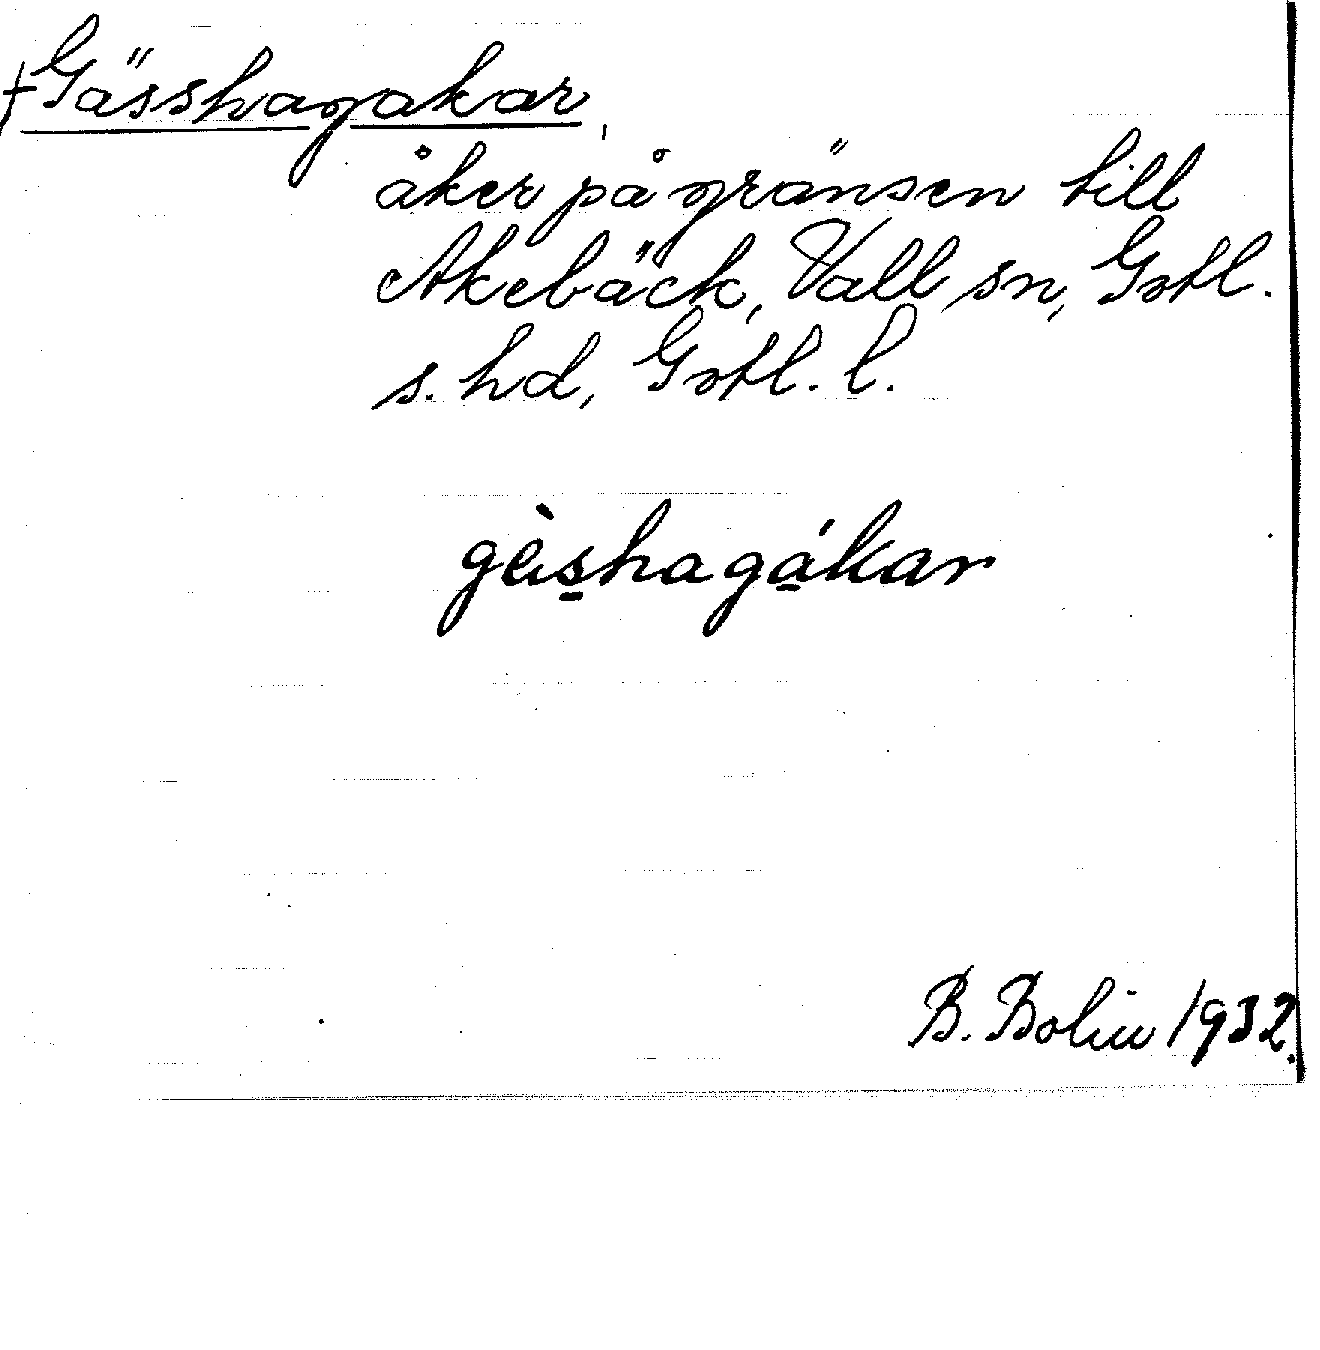 †Gässhagakar,
åker på gränsen till
Akebäck, Vall sn, Gotl.
s. hd, Gotl. l.
gèis̲hagá̲kar
B. Bolin 1932.